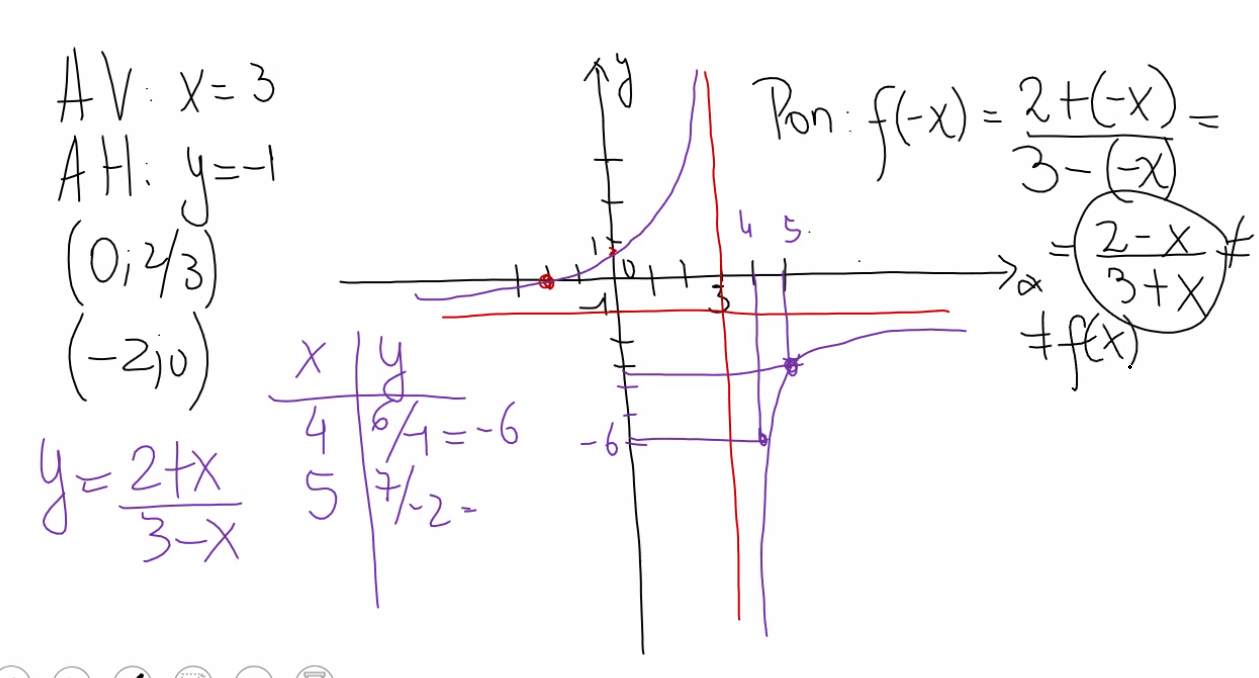 AV: x = 3
AH: y = -1
(0; 2/3)
(-2; 0)
y = (2+x)/(3-x)
x | y
4 | 6/-1 = -6
5 | 7/-2 =
y
1
0
-1
3
4
5
-6
x
Pon: f(-x) = (2+(-x))/(3-(-x)) =
= (2-x)/(3+x) ≠
≠ f(x)